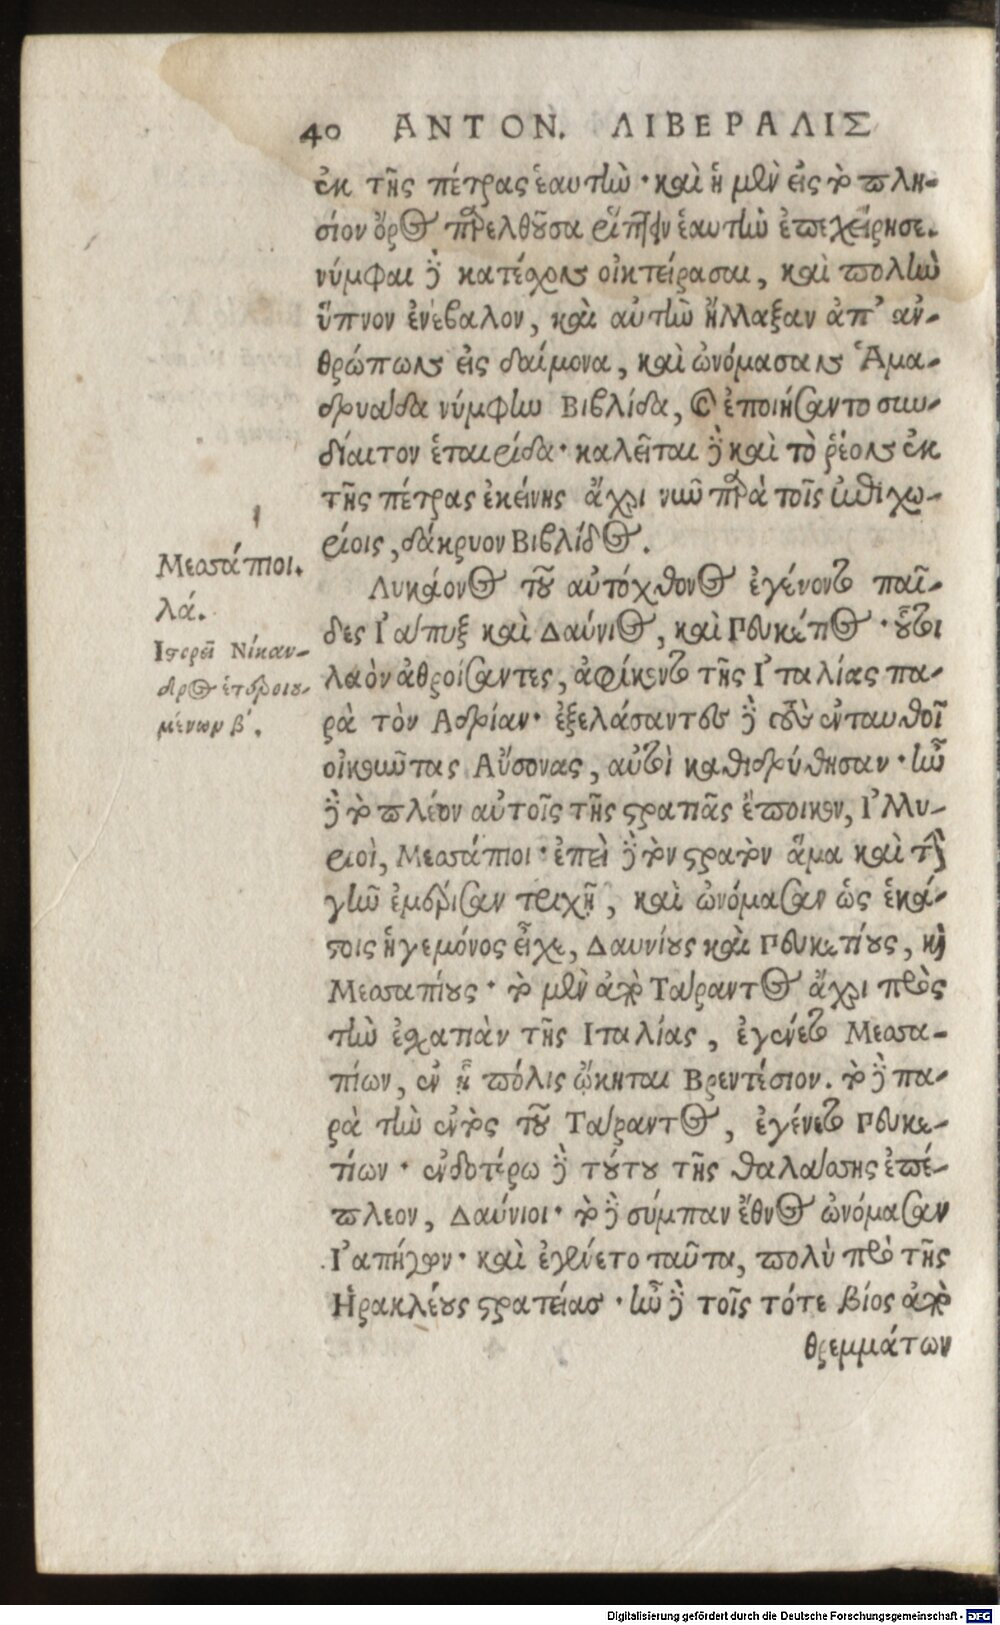 40 ΑΝΤΟΝ. ΛΙΒΕΡΑΛΙΣ
ἐκ τῆς πέτρας ἑαυτὴν· καὶ ἡ μὲν εἰς τὸ πλη-
σίον ὄρος παρελθοῦσα ῥίπτειν ἑαυτὴν ἐπεχείρησε.
νύμφαι δὲ κατέσχον οἰκτείρασαι, καὶ πολὺν
ὕπνον ἐνέβαλον, καὶ αὐτὴν ἤλλαξαν ἀπ' ἀν-
θρώπου εἰς δαίμονα, καὶ ὠνόμασαν Ἁμα-
δρυάδα νύμφην Βιβλίδα, καὶ ἐποιήσαντο συν-
δίαιτον ἑταιρίδα· καλεῖται δὲ καὶ τὸ ῥέον ἐκ
τῆς πέτρας ἐκείνης ἄχρι νῦν παρὰ τοῖς ἐπιχω-
ρίοις, δάκρυον Βιβλίδος.
Μεσσάπιοι.
λά.
Ἱστορεῖ Νίκαν-
δρος ἑτεροιου-
μένων β'.
Λυκάονος τοῦ αὐτόχθονος ἐγένοντο παῖ-
δες Ἰάπυξ καὶ Δαύνιος, καὶ Πευκέτιος· οὗτοι
λαὸν ἀθροίσαντες, ἀφίκοντο τῆς Ἰταλίας πα-
ρὰ τὸν Ἀδρίαν· ἐξελάσαντες δὲ τοὺς ἐνταυθοῖ
οἰκοῦντας Αὔσονας, αὐτοὶ καθιδρύθησαν· ἦν
δὲ τὸ πλέον αὐτοῖς τῆς στρατιᾶς ἔποικον, Ἰλλυ-
ριοὶ, Μεσσάπιοι· ἐπεὶ δὲ τὸν στρατὸν ἅμα καὶ τὴν
γῆν ἐμέρισαν τριχῇ, καὶ ὠνόμασαν ὡς ἑκά-
στοις ἡγεμόνος εἶχε, Δαυνίους καὶ Πευκετίους, καὶ
Μεσσαπίους· τὸ μὲν ἀπὸ Τάραντος ἄχρι πρὸς
τὴν ἐσχατιὰν τῆς Ἰταλίας, ἐγένετο Μεσσα-
πίων, ἐν ᾗ πόλις ᾤκηται Βρεντέσιον. τὸ δὲ πα-
ρὰ τὴν ἐντὸς τοῦ Τάραντος, ἐγένετο Πευκε-
τίων· ἐνδοτέρω δὲ τούτου τῆς θαλάσσης ἐπέ-
πλεον, Δαύνιοι· τὸ δὲ σύμπαν ἔθνος ὠνόμασαν
Ἰαπύγων· καὶ ἐγένετο ταῦτα, πολὺ πρὸ τῆς
Ἡρακλέους στρατείας· ἦν δὲ τοῖς τότε βίος ἀπὸ
θρεμμάτων
Digitalisierung gefördert durch die Deutsche Forschungsgemeinschaft - DFG